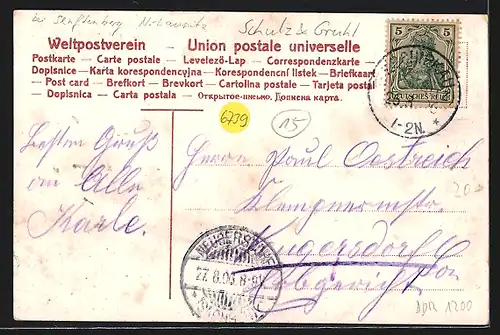 bei Senftenberg
Schulz & Gruhl
Weltpostverein - Union postale universelle
Postkarte - Carte postale - Levelező-Lap - Correspondenzkarte
Dopisnice - Karta korespondencyjna - Korespondencní listek - Briefkaart
- Post card - Brefkort - Brevkort - Cartolina postale - Tarjeta postal
- Dopisnica - Carta postala - Открытое письмо. Дописна карта.
5 5
DEUTSCHES REICH
1-2N.
6239
15
Besten Gruß
an Alle
Karle.
Herrn Paul Oestreich
Klempnermstr.
27.8.03. 8-9V
20
DDR 1200